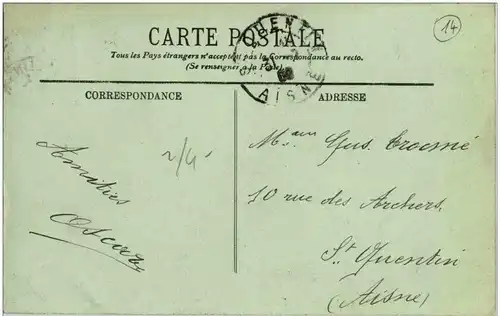 CARTE POSTALE
Tous les Pays étrangers n'acceptent pas la Correspondance au recto.
(Se renseigner à la Poste)
14
AISN
CORRESPONDANCE
ADRESSE
Amitiés
Oscar
2/4
Gus. Crocmé
10 rue des Archers.
St Quentin
(Aisne)